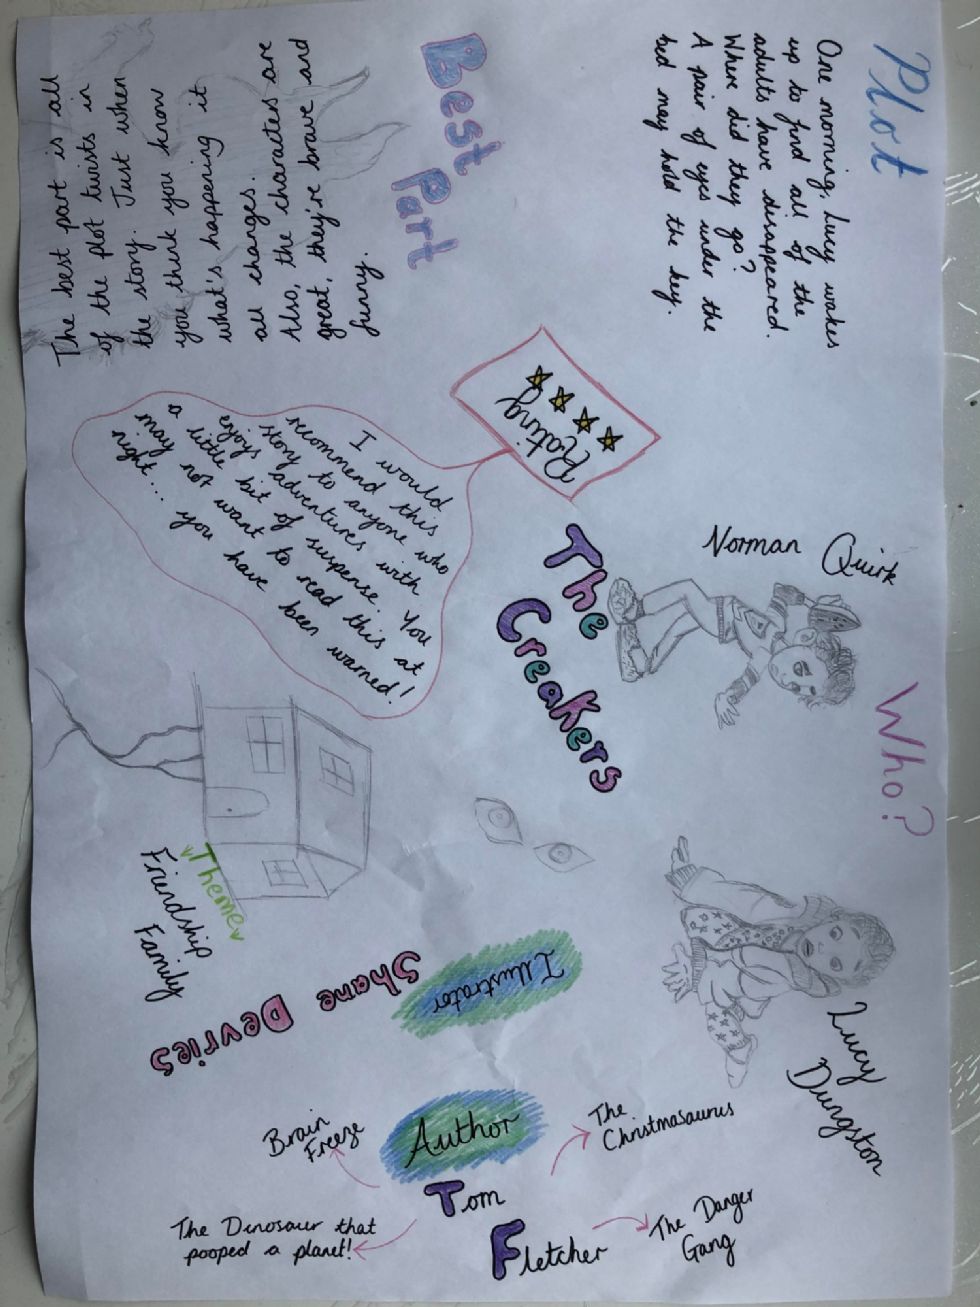 Plot
One morning, Lucy wakes
up to find all of the
adults have disappeared.
Where did they go?
A pair of eyes under the
bed may hold the key.
Best
Part
The best part is all
of the plot twists in
the story. Just when
you think you know
what's happening it
all changes.
Also, the characters are
great, they're brave and
funny.
Rating
I would
recommend this
story to anyone who
enjoys adventures with
a little bit of suspense. You
may not want to read this at
night... you have been warned!
The
Creakers
Who?
Norman Quirk
Lucy
Dungston
Theme
Friendship
Family
Illustrator
Shane Devries
Author
Tom
Fletcher
The
Christmasaurus
The Danger
Gang
Brain
Freeze
The Dinosaur that
pooped a planet!